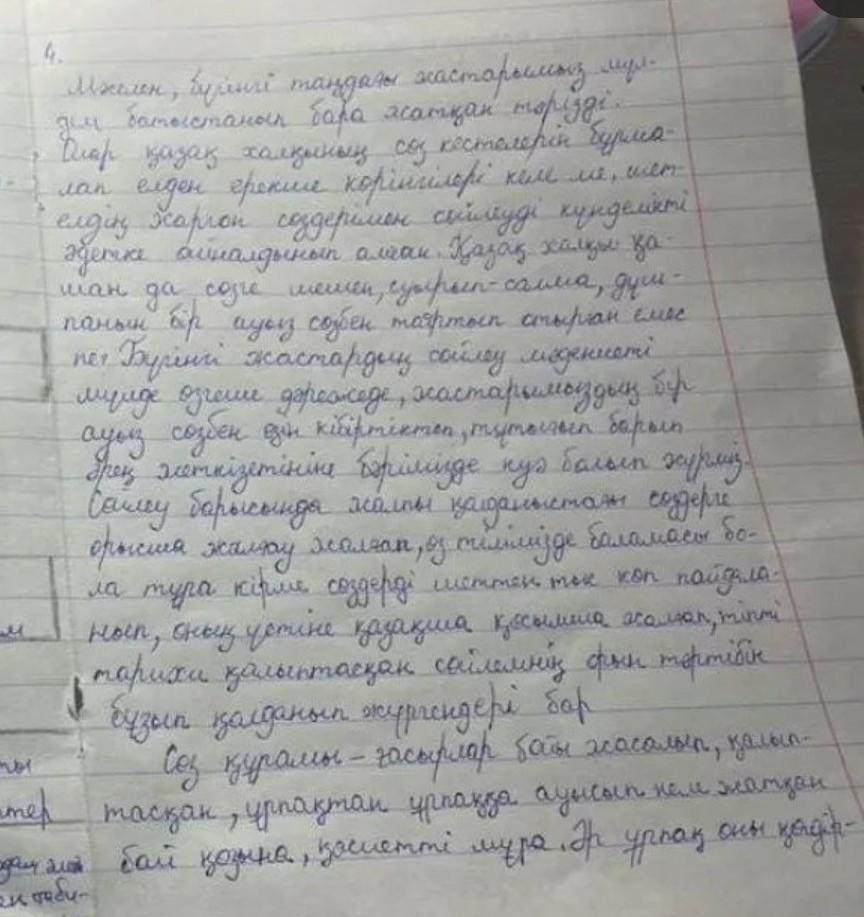 4.
Мәселен, бүгінгі таңдағы жастарымыз мүл-
дем батыстанып бара жатқан тәрізді.
Олар қазақ халқының сөз кестелерін бұрма-
лап елден ерекше көрінгілері келе ме, шет
елдің жаргон сөздерімен сөйлеуді күнделікті
әдетке айналдырып алған. Қазақ халқы қа-
шан да сөзге шешен, суырып-салма, дұш-
панын бір ауыз сөзбен тоқтатып отырған емес
пе? Бүгінгі жастардың сөйлеу мәдениеті
мүлде өзгеше дәрежеде, жастарымыздың бір
ауыз сөзбен өзін кібіртіктеп, тұтығып барып
әрең жеткізетініне бәрімізде куә болып жүрміз.
Сөйлеу барысында жалпы қолданыстағы сөздерге
орысша жалғау жалғап, өз тілімізде баламасы бо-
ла тұра кірме сөздерді шеттен тыс көп пайдала-
нып, оның үстіне қазақша қосымша жалғап, тіпті
тарихи қалыптасқан сөйлемнің орын тәртібін
бұзып қолданып жүргендері бар
Сөз құрамы – ғасырлар бойы жасалып, қалып-
тасқан, ұрпақтан ұрпаққа ауысып келе жатқан
бай қазына, қасиетті мұра. Әр ұрпақ оны қадір-
м
ты
тер